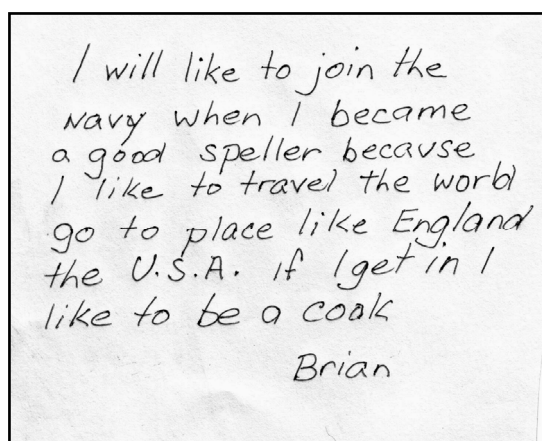 I will like to join the
Navy when I became
a good speller because
I like to travel the world
go to place like England
the U.S.A. If I get in I
like to be a coak
Brian